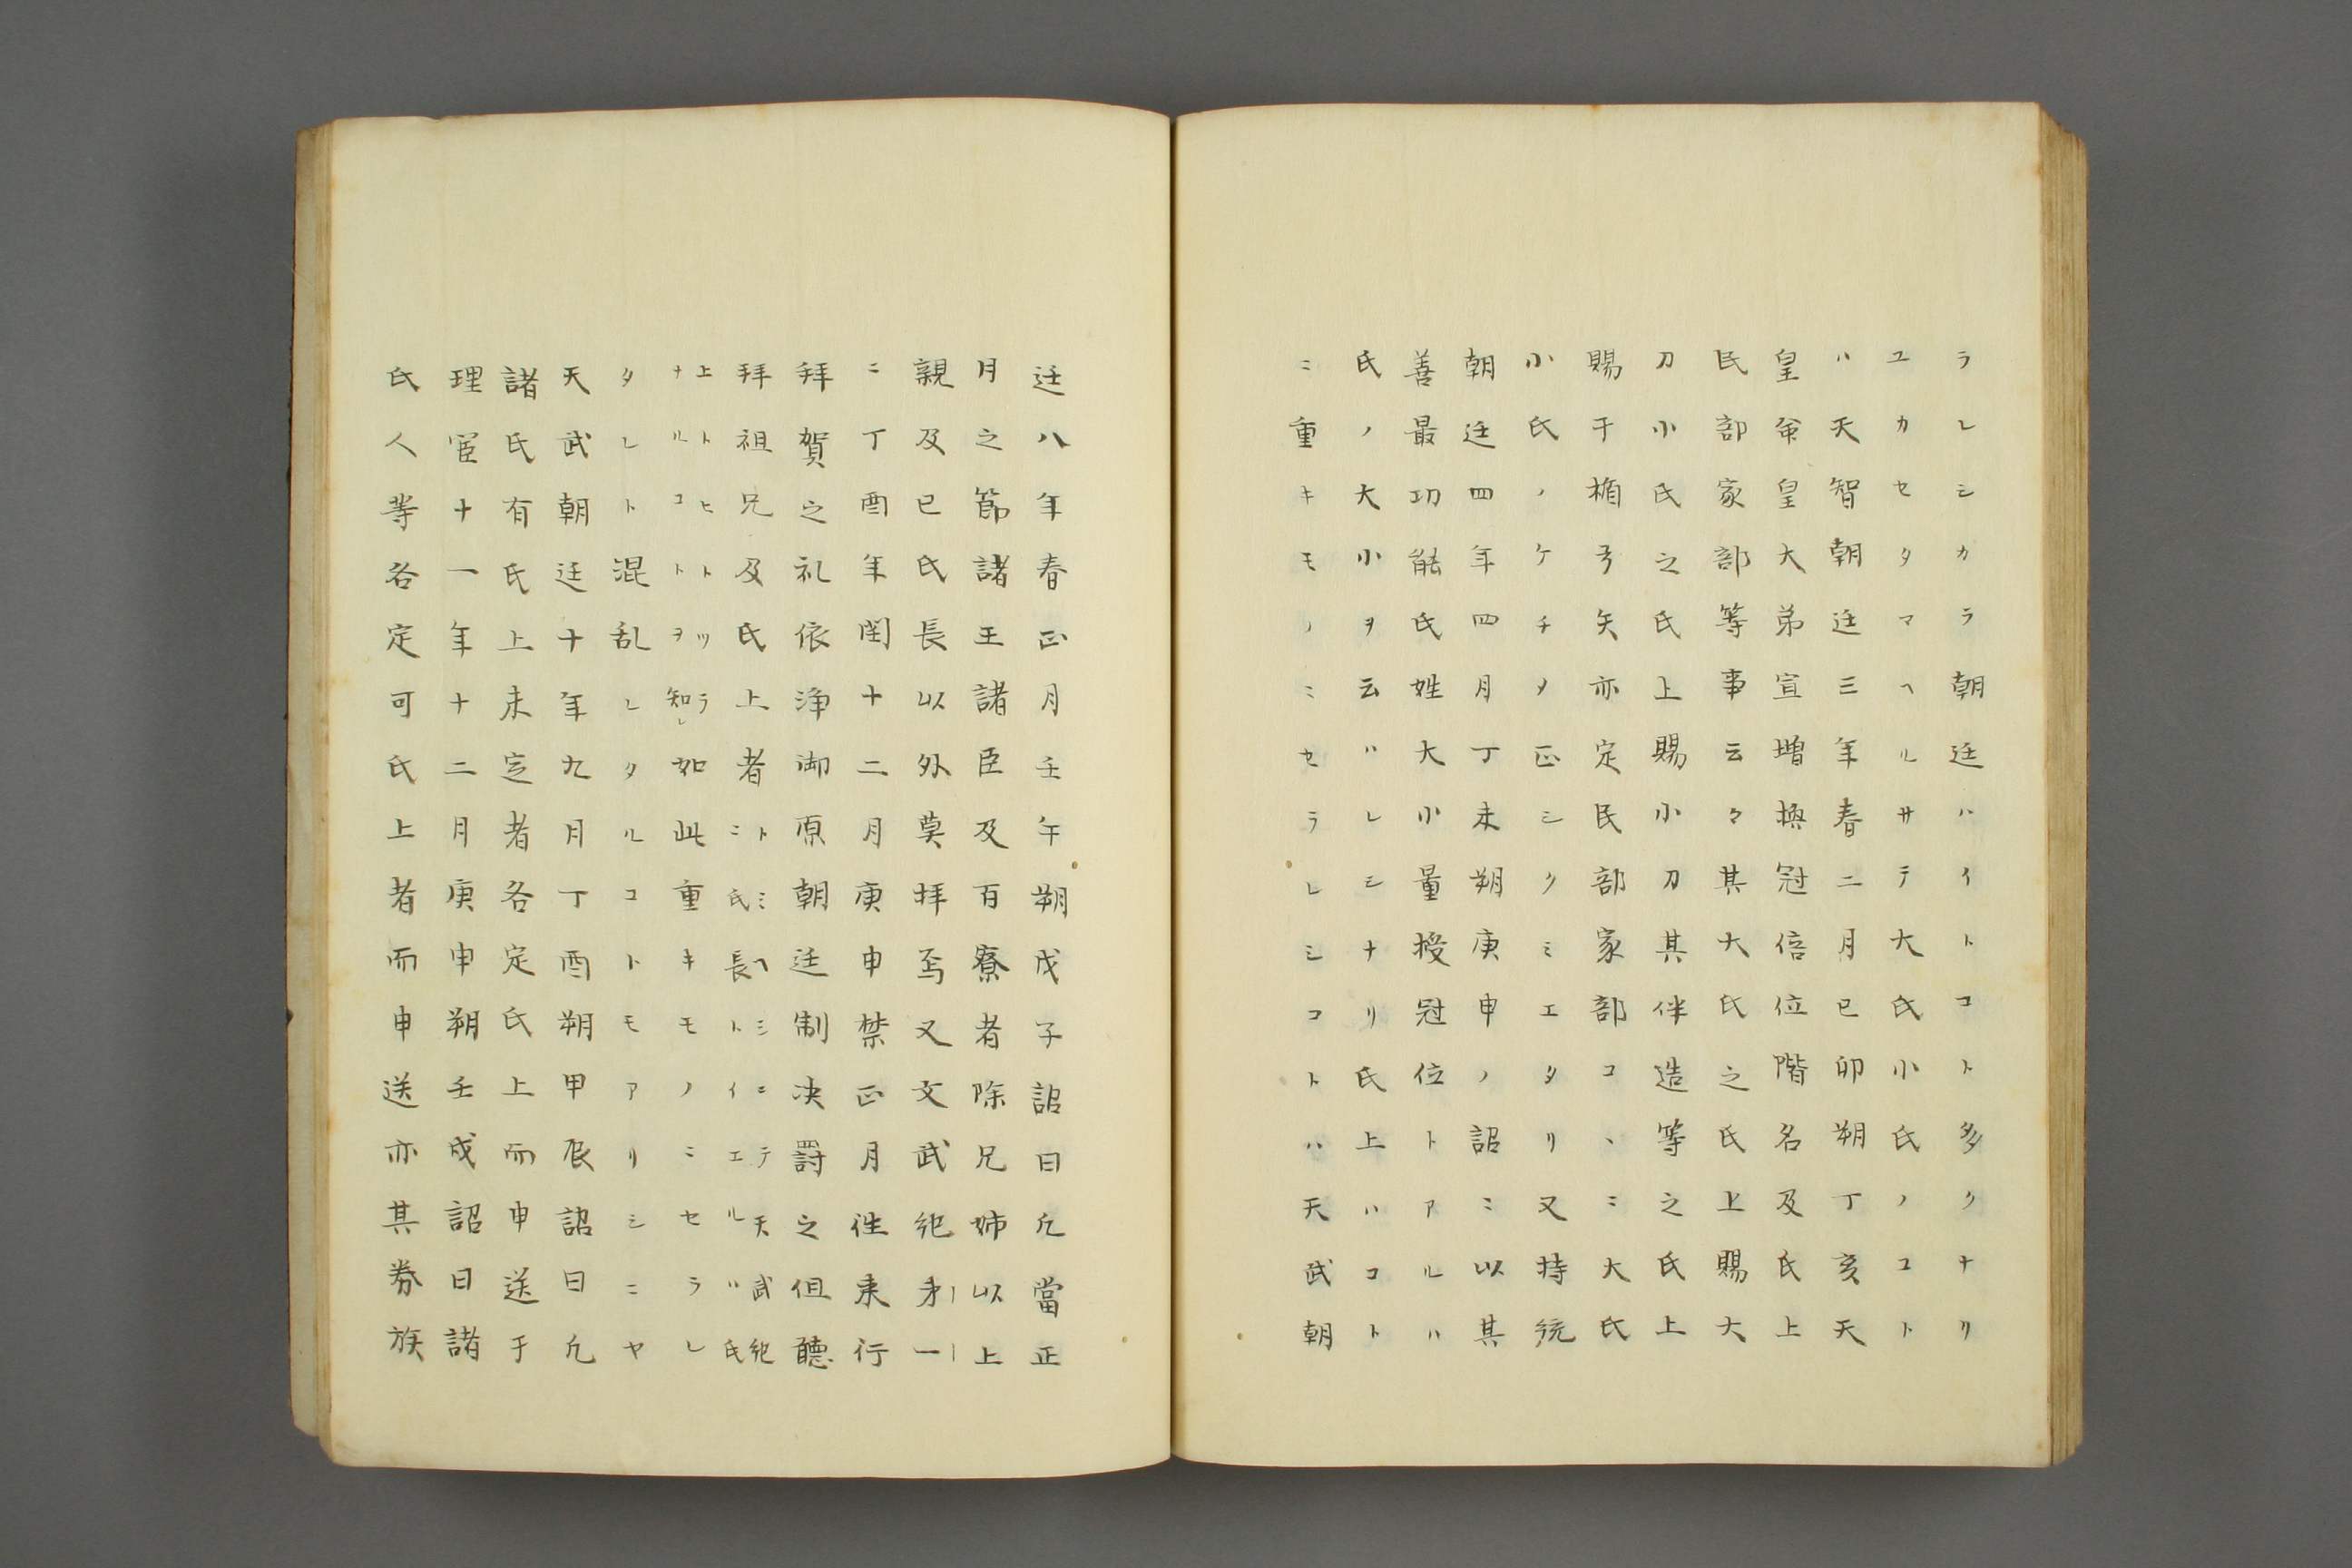 ラレシカラ朝廷ハイトコト多クナリ
ユカセタマヘルサテ大氏小氏ノコト
ハ天智朝廷三年春二月已卯朔丁亥天
皇命皇大弟宣増換冠倍位階名及氏上
民部家部等事云々其大氏之氏上賜大
刀小氏之氏上賜小刀其伴造等之氏上
賜干楯弓矢亦定民部家部コヽニ大氏
小氏ノケチメ正シクミエタリ又持統
朝廷四年四月丁未朔庚申ノ詔ミ以其
善最功能氏姓大小量授冠位トアルハ
氏ノ大小ヲ云ハレシナリ氏上ハコト
ニ重キモノニセラレシコトハ天武朝
廷八年春正月壬午朔戊子詔曰凡當正
月之節諸王諸臣及百寮者除兄姉以上
親及已氏長以外莫拝焉又文武紀第一
ニ丁酉年閏十二月庚申禁正月往来行
拜賀之礼依浄御原朝廷制决罸之但聽
拜祖兄及氏上者トミヘシニテ天武紀
ニ氏長トイエルハ氏
上トヒトツラ
ナルコトヲ知レ如此重キモノニセラレ
タレト混乱レタルコトモアリシニヤ
天武朝廷十年九月丁酉朔甲辰詔曰凡
諸氏有氏上未定者各定氏上而申送于
理官十一年十二月庚申朔壬戌詔曰諸
氏人等各定可氏上者而申送亦其眷族